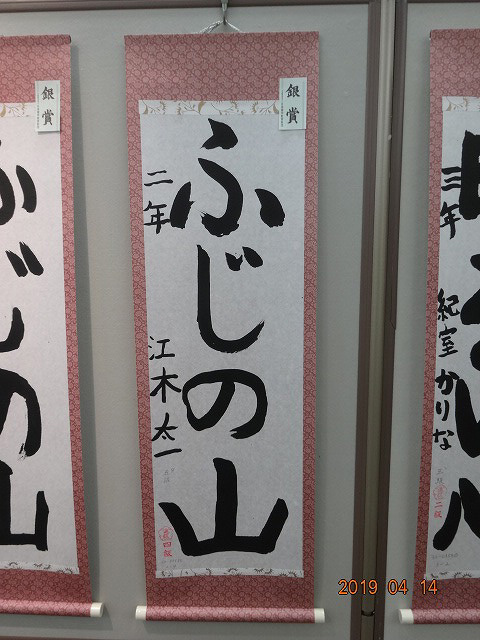 銀賞
ふじの山
二年
江木太一
四級
銀賞
ふじの山
三年
紀室かりな
二級
2019 04 14